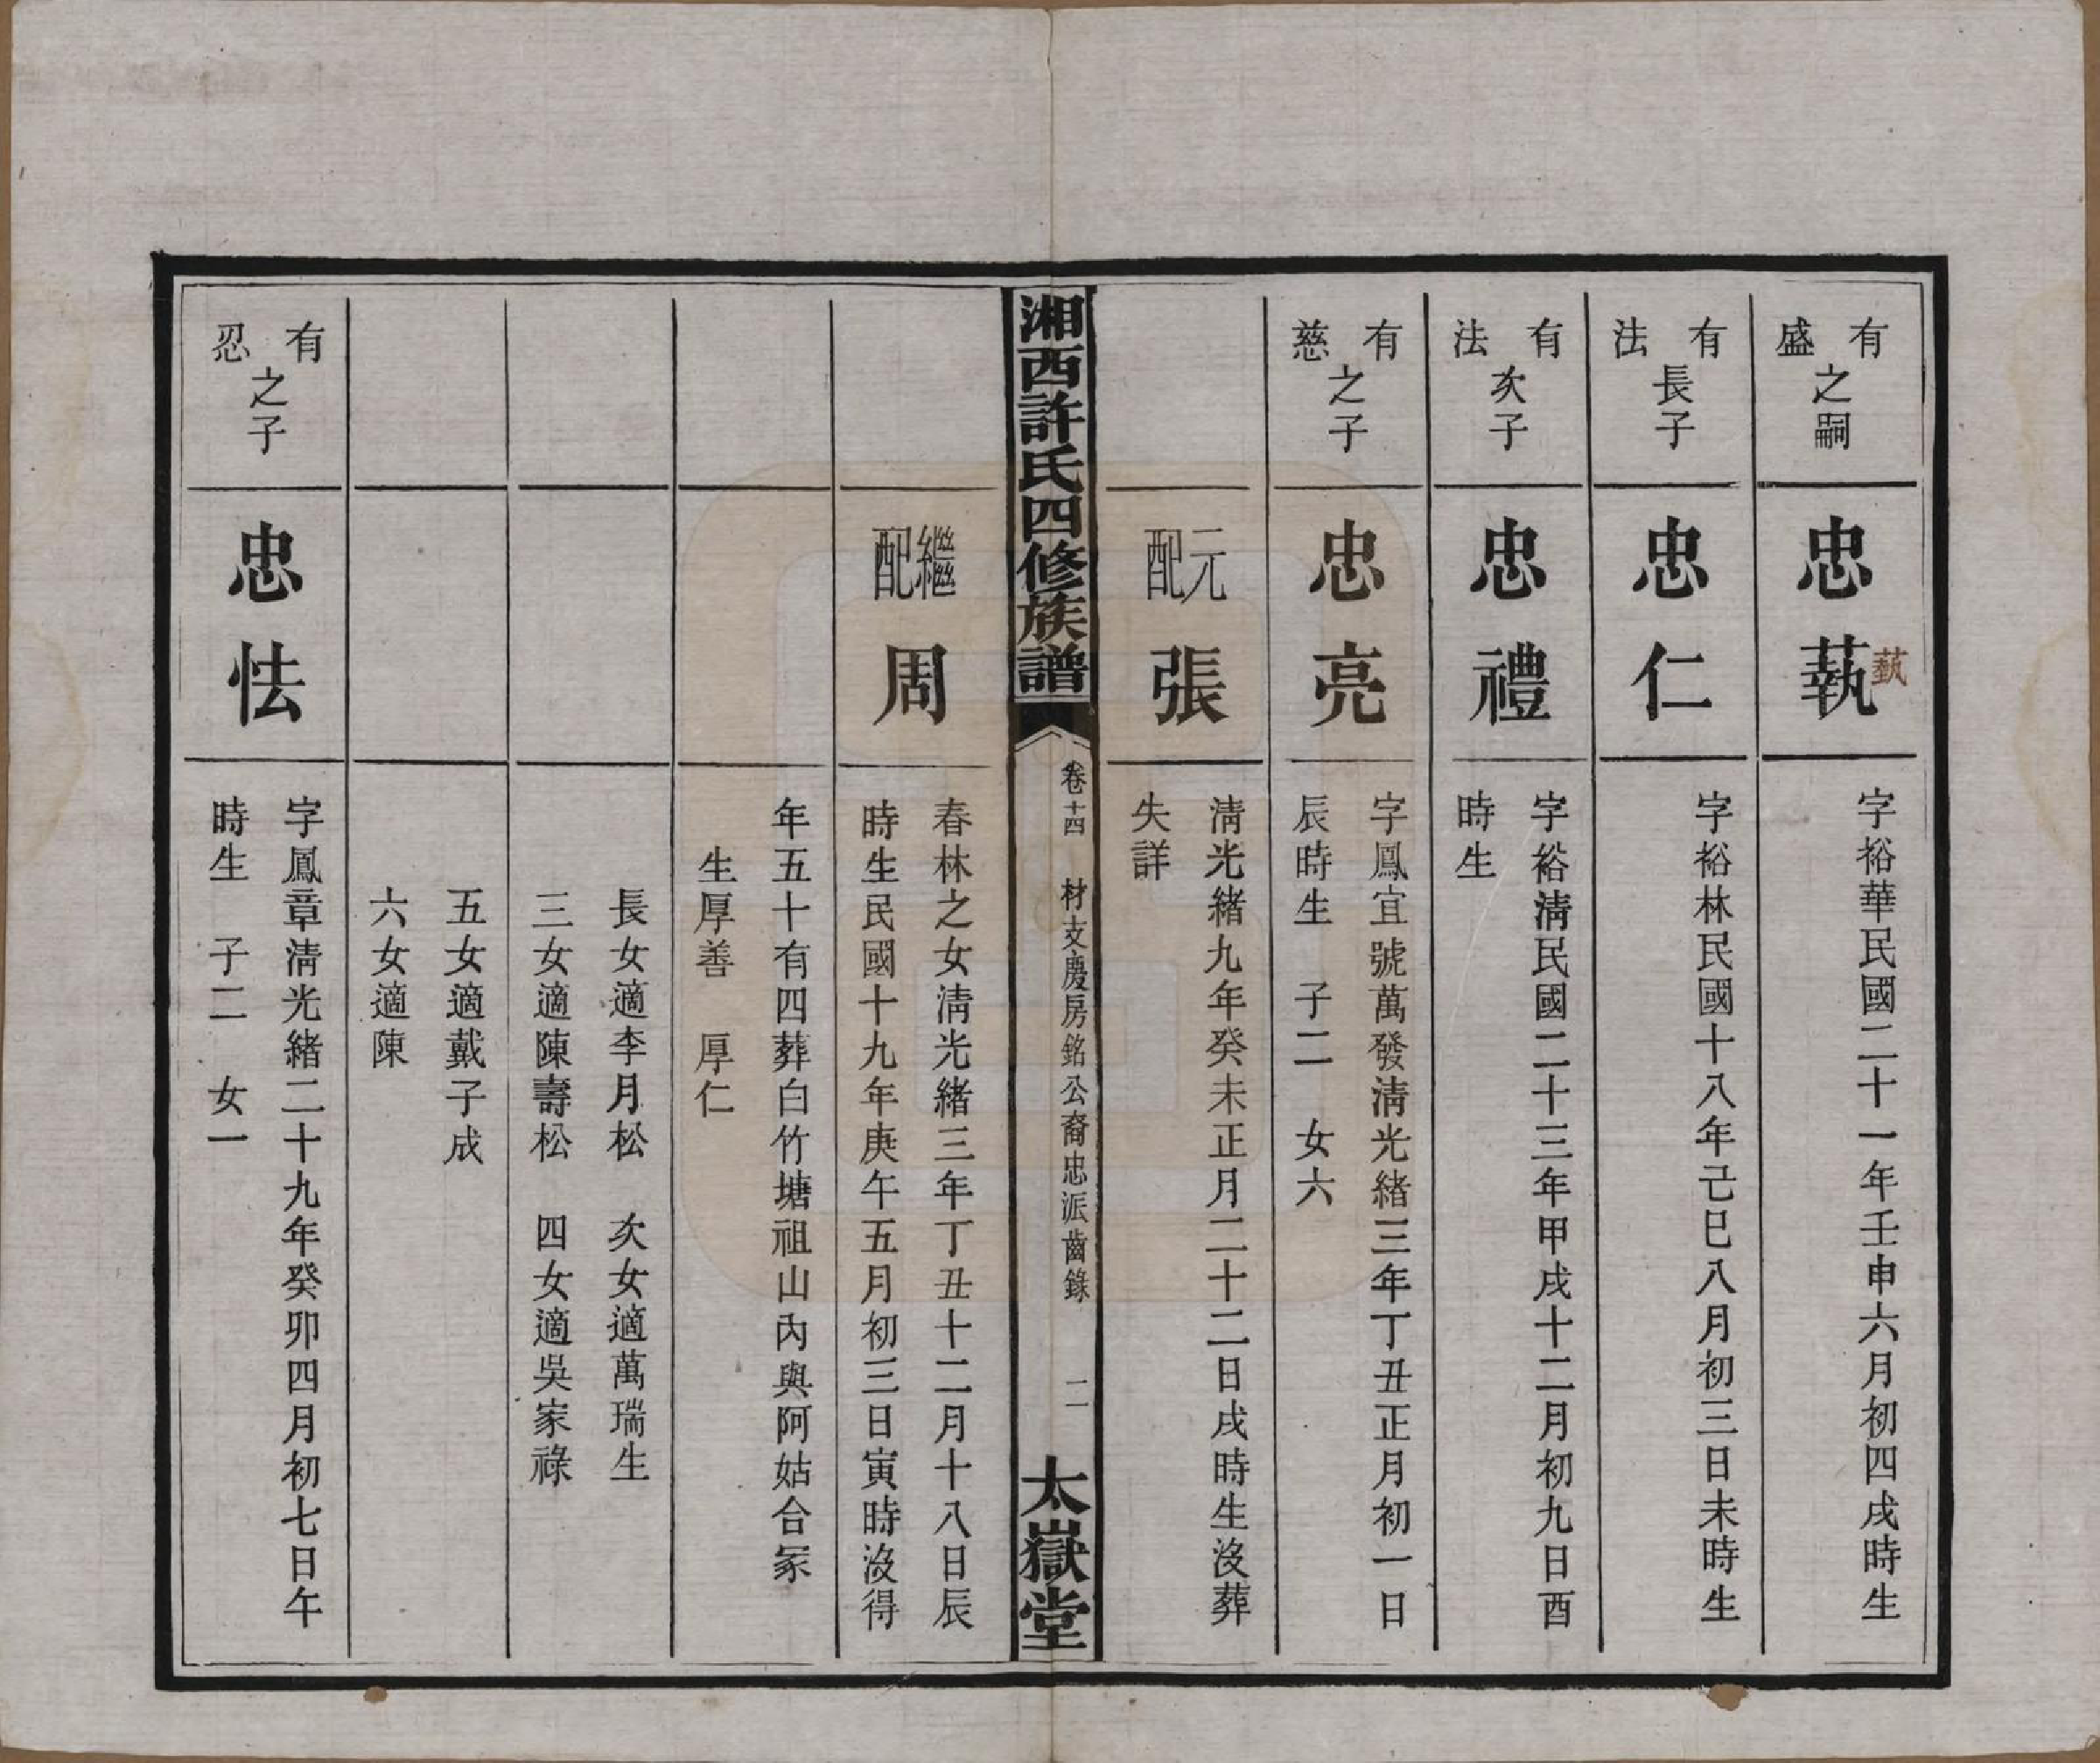 有盛之嗣
忠蓺
藝
字裕華民國二十一年壬申六月初四戌時生
有法長子
忠仁
字裕林民國十八年己巳八月初三日未時生
有法次子
忠禮
字裕淸民國二十三年甲戌十二月初九日酉
時生
有慈之子
忠亮
字鳳宜號萬發淸光緒三年丁丑正月初一日
辰時生　子二　女六
元配
張
淸光緒九年癸未正月二十二日戌時生沒葬
失詳
湘西許氏四修族譜
卷十四　材支慶房銘公裔忠派齒錄　二
太嶽堂
繼配
周
春林之女淸光緒三年丁丑十二月十八日辰
時生民國十九年庚午五月初三日寅時沒得
年五十有四葬白竹塘祖山內與阿姑合冢
生厚善　厚仁
長女適李月松　次女適萬瑞生
三女適陳壽松　四女適吳家祿
五女適戴子成
六女適陳
有忍之子
忠怯
字鳳章淸光緒二十九年癸卯四月初七日午
時生　子二　女一